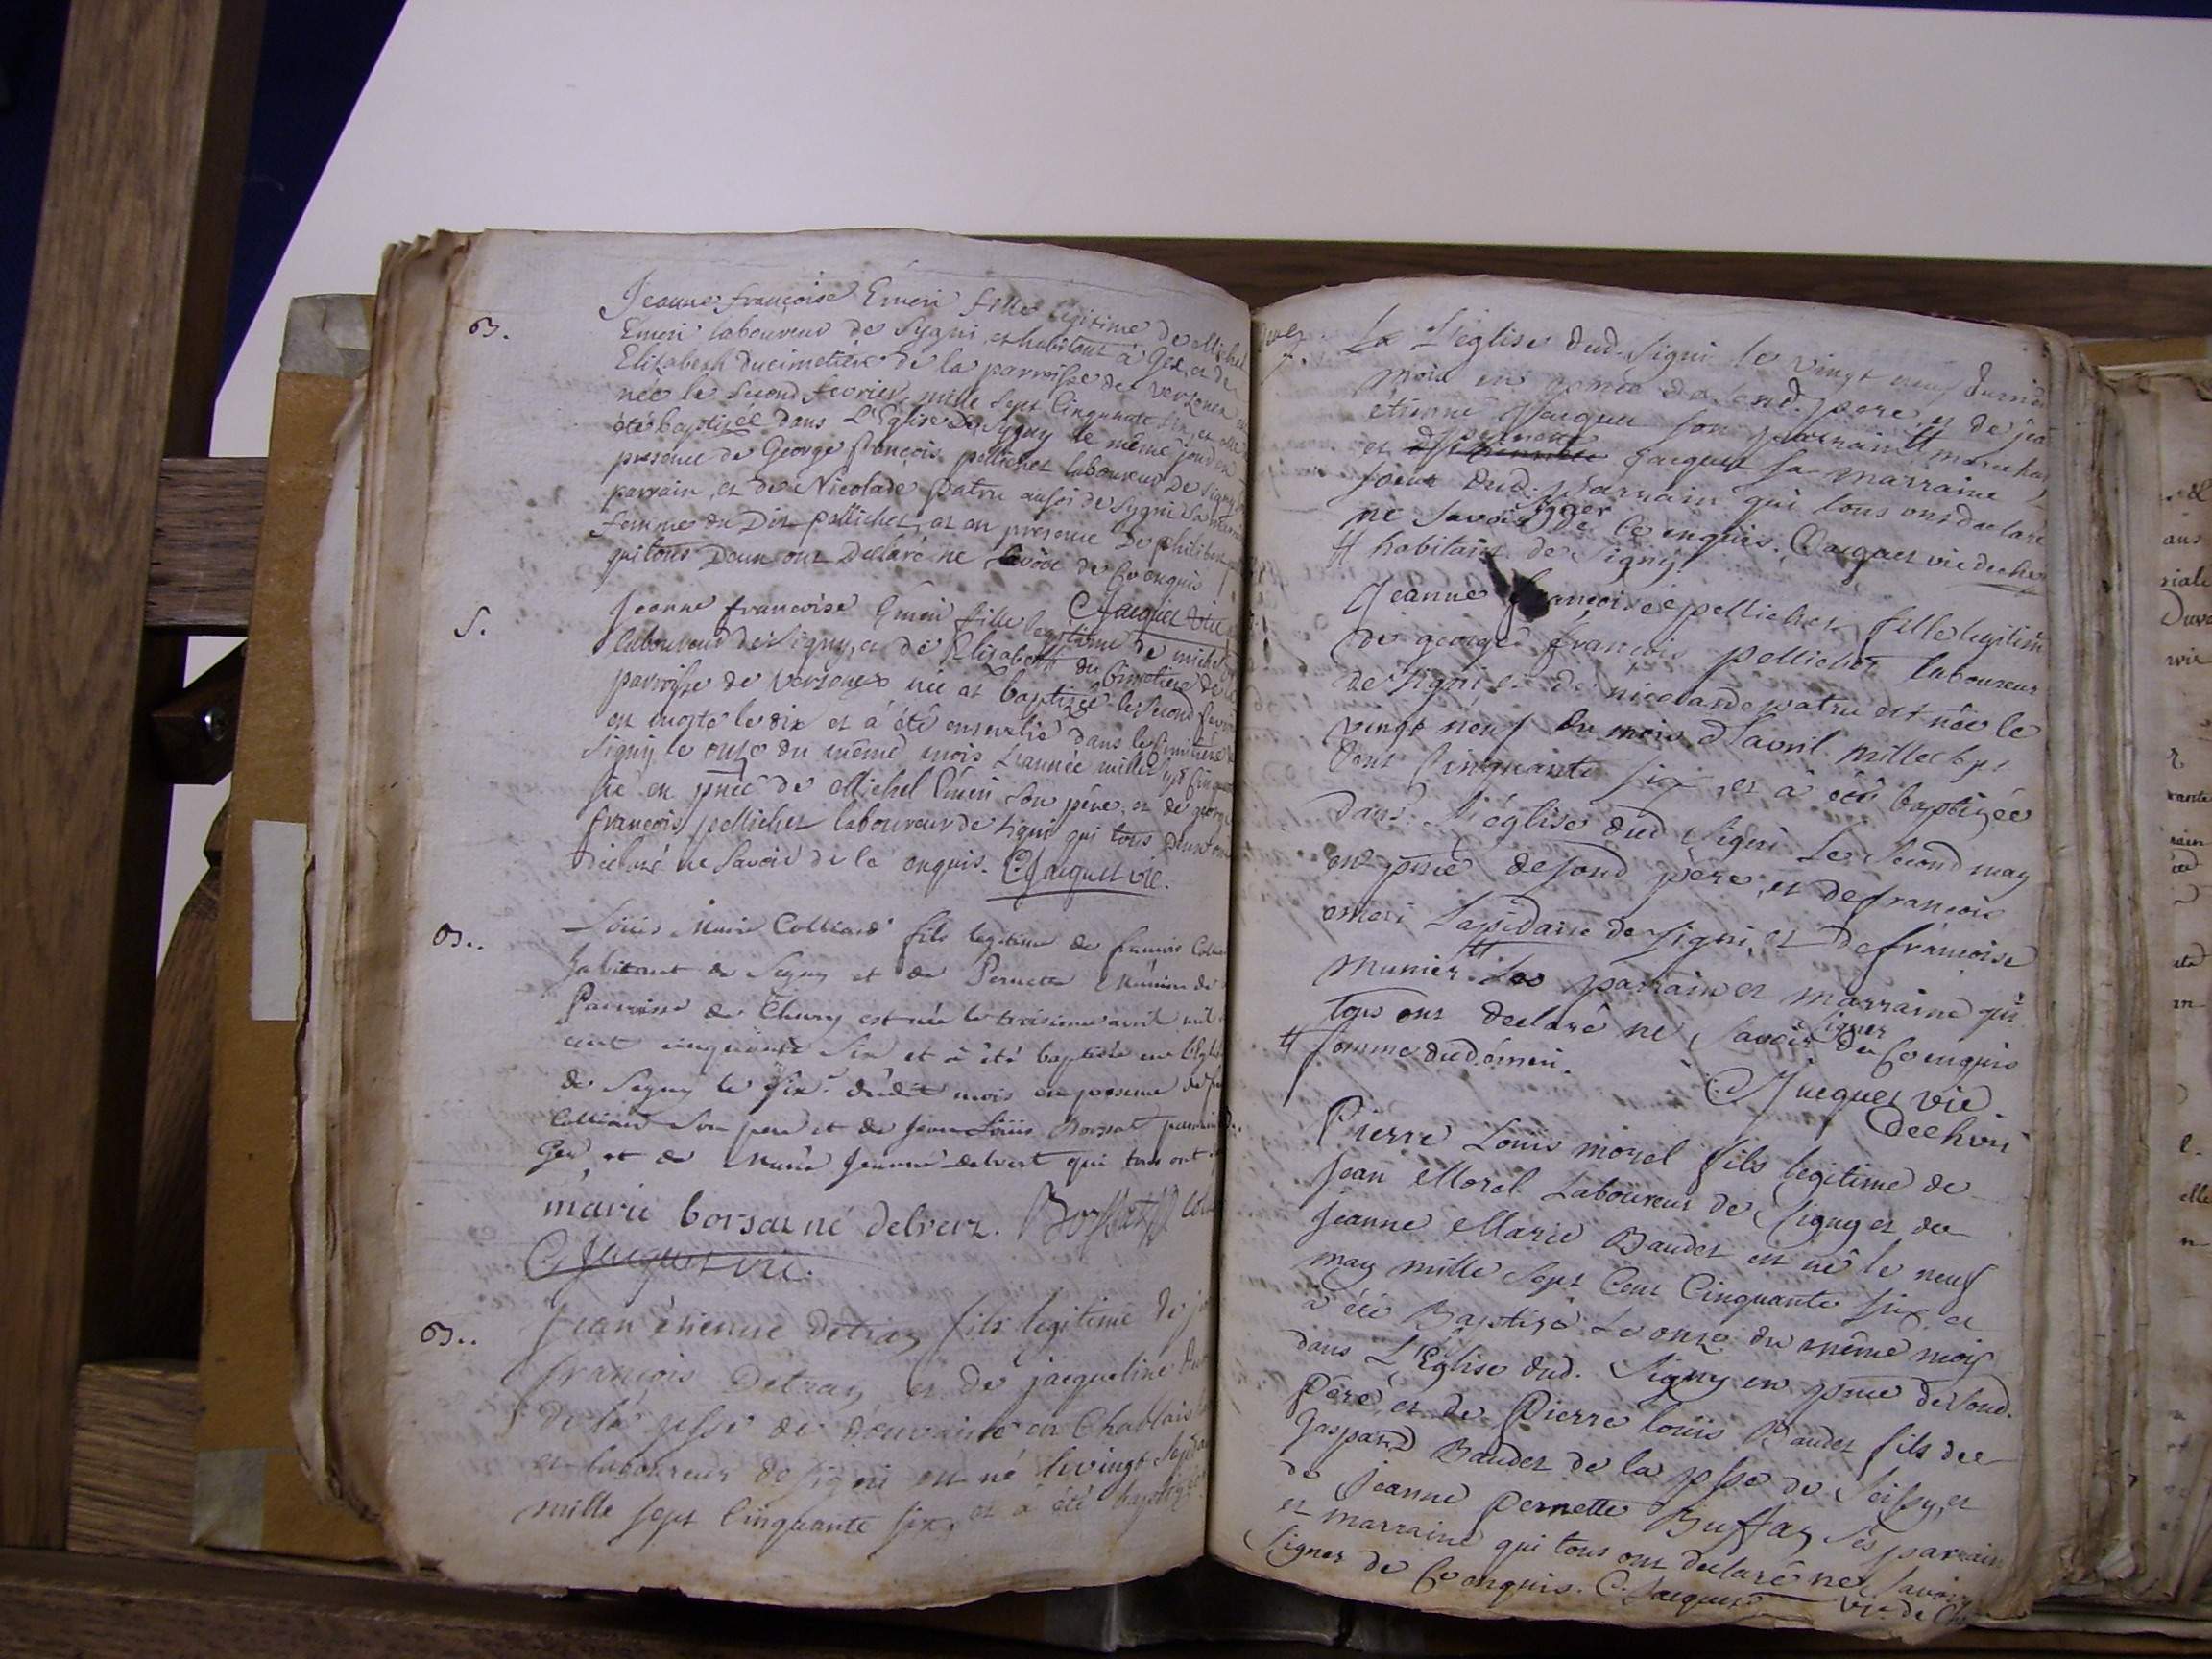 B.
Jeanne françoise Emeri fille legitime de Michel
Emeri laboureur de Sygni et habitant à Gex, et de
Elizabeth ducimetiere de la parroisse de Versonex
née le second fevrier mille sept Cinquante six, et elle
été baptizée dans L'Eglise De Sygny le même jour en
presence de George françois pellichet laboureur De Signy
parrain, et de Nicolade patru aussi de Sygni
femme du Dit pellichet, et en presence De philibert
qui tous Deux ont Declaré ne savoir de Ce enquis
C Jacquet vic
S.
Jeanne francoise Emeri fille legitime de michel
laboureur de Signy, et de Elizabeth du Cimetiere de la
parroisse de versonex née et baptizée le second fevrier
est morte le dix et à été ensevelie dans le Cimitiere de
Signy le onze du même mois L'année mille sept Cinquante
six en pnce de Michel Emeri son père, et de george
francois pellichet laboureur de Signi qui tous deux ont
declaré ne savoir de le enquis. C Jacquet vic.
B..
Louis Marie Colliard fils legitime de francois
habitant de Segny et de Pernette Munier de
Parroisse de Thury est née le troisieme avril mil
cent cinquante six et à été baptisée en l'Eglise
de Segny le six dudit mois en presence de
Colliard son pere et de Jean Louis Borsat parrain
Gex et de Marie Jeanne delvert qui tous ont
marie borsat né delverz. Borssat
C Jacquet vic.
B..
Jean étienne detraz fils legitime de
françois Detraz et de jacqueline
de la psse de douvaine en Chablais
et laboureur de Signi est né le vingt sept
mille sept Cinquante six, et à été baptizé
L'église dud. Signi le vingt neuf
mois en pnce de sond. pere, et de
etienne Jacquet son parrain # marechal
et pernette Jacquet sa marraine,
soeur dud: parrain qui tous ont declaré
ne savoir signer De Ce enquis. C Jacquet vic de
# habitant de Signy.
Jeanne françoise pellichet fille legitime
de george françois pellichet laboureur
de Signi et de nicolarde patru est née le
vingt neuf du mois d'avril mille sept
Cent Cinquante six, et à été baptizée
dans L'église dud Signi Le second may
en pnce de sond père, et de francois
emeri Lapidaire de Signi, et de francoise
munier # parrain et marraine qui
tous ont declaré ne savoir signer de Ce enquis
# femme dud. émeri.
C Jacquet vic.
Pierre Louis morel fils legitime de
Jean Morel Laboureur de Signy et de
Jeanne Marie Baudet est né le neuf
may mille sept Cent Cinquante six et
a été Baptizé Le onze du même mois
dans L'Eglise dud. Signy en pnce de sond.
Père, et de Pierre louis Baudet fils de
gaspard Baudet de la psse de Seissy, et
de Jeanne Pernette Buffaz ses parrain
et marraine qui tous ont declaré ne savoir
signer de Ce enquis. C. Jacquet vic.